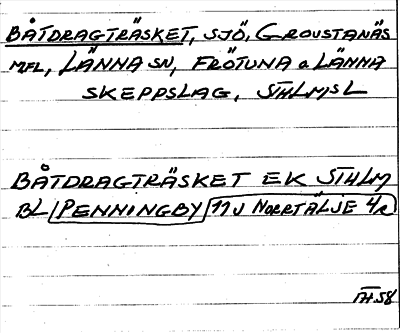 BÅTDRAGTRÄSKET, SJÖ, GROUSTANÄS
MFL, LÄNNA SN, FRÖTUNA O LÄNNA
SKEPPSLAG, STHLMS L
BÅTDRAGTRÄSKET EK STHLM
BL PENNINGBY 11J NORRTÄLJE 4a
TH 58